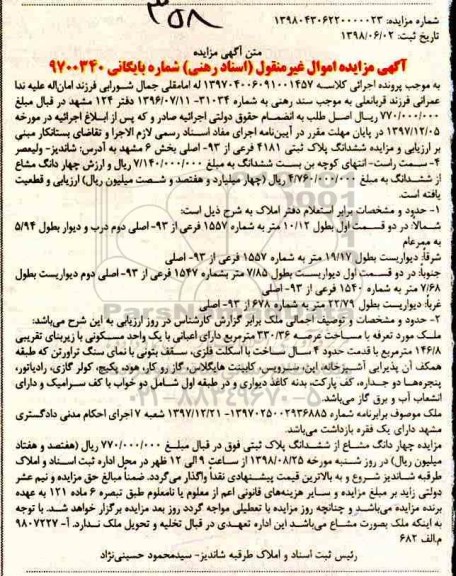 ۳۵۸
شماره مزایده: ۱۳۹۸۰۴۳۰۶۲۲۰۰۰۰۰۲۳
تاریخ ثبت: ۱۳۹۸/۰۶/۰۲
متن آگهی مزایده
آگهی مزایده اموال غیرمنقول (اسناد رهنی) شماره بایگانی ۹۷۰۰۳۴۰
به موجب پرونده اجرائی کلاسه ۱۳۹۷۰۴۰۰۶۰۹۱۰۰۱۴۵۷ له امامقلی جمال شورابی فرزند امان‌اله علیه ندا
عمرانی فرزند قربانعلی به موجب سند رهنی به شماره ۳۱۰۳۴- ۱۳۹۶/۰۷/۱۱ دفتر ۱۲۴ مشهد در قبال مبلغ
۷۷۰/۰۰۰/۰۰۰ ریال اصل طلب به انضمام حقوق دولتی اجرائیه صادر و که پس از ابلاغ اجرائیه در مورخه
۱۳۹۷/۱۲/۰۵ در پایان مهلت مقرر در آیین‌نامه اجرای مفاد اسناد رسمی لازم الاجرا و تقاضای بستانکار مبنی
بر ارزیابی و مزایده ششدانگ پلاک ثبتی ۴۱۸۱ فرعی از ۹۳- اصلی بخش ۶ مشهد به آدرس: شاندیز- ولیعصر
۴- سمت راست- انتهای کوچه بن بست ششدانگ به مبلغ ۷/۱۴۰/۰۰۰/۰۰۰ ریال و ارزش چهار دانگ مشاع
از ششدانگ به مبلغ ۴/۷۶۰/۰۰۰/۰۰۰ ریال (چهار میلیارد و هفتصد و شصت میلیون ریال) ارزیابی و قطعیت
یافته است.
۱- حدود و مشخصات برابر استعلام دفتر املاک به شرح ذیل است:
شمالا: در دو قسمت اول بطول ۱۰/۱۲ متر به شماره ۱۵۵۷ فرعی از ۹۳- اصلی دوم درب و دیوار بطول ۵/۹۴
به ممرعام
شرقاً: دیواریست بطول ۱۹/۱۷ متر به شماره ۱۵۵۷ فرعی از ۹۳- اصلی
جنوبا: در دو قسمت اول دیواریست بطول ۷/۸۵ متر بشماره ۱۵۴۷ فرعی از ۹۳- اصلی دوم دیواریست بطول
۷/۶۸ متر به شماره ۱۵۴۰ فرعی از ۹۳- اصلی
غرباً: دیواریست بطول ۲۲/۷۹ متر به شماره ۶۷۸ از ۹۳- اصلی
۲- حدود و مشخصات و توصیف اجمالی ملک برابر گزارش کارشناس در روز ارزیابی به این شرح می‌باشد:
ملک مورد تعرفه با مساحت عرصه ۳۳۰/۳۶ مترمربع دارای اعیانی با یک واحد مسکونی با زیربنای تقریبی
۱۴۶/۸ مترمربع با قدمت حدود ۴ سال ساخت با اسکلت فلزی، سقف بتونی با نمای سنگ تراورتن که طبقه
همکف آن پذیرایی آشپزخانه، اپن، سرویس، کابینت هایگلاس، گاز رو کار، هود، پکیج، کولر گازی، رادیاتور،
پنجره‌ها دو جداره، کف پارکت، بدنه کاغذ دیواری و در طبقه اول شامل دو خواب با کف سرامیک و دارای
انشعاب آب و برق گاز می‌باشد.
ملک موصوف برابرنامه شماره ۱۳۹۷۰۲۵۰۰۲۹۳۶۸۸۵- ۱۳۹۷/۱۲/۲۱ شعبه ۷ اجرای احکام مدنی دادگستری
مشهد دارای یک فقره بازداشت می‌باشد.
مزایده چهار دانگ مشاع از ششدانگ پلاک ثبتی فوق در قبال مبلغ ۷۷۰/۰۰۰/۰۰۰ ریال (هفتصد و هفتاد
میلیون ریال) در روز شنبه مورخه ۱۳۹۸/۰۸/۲۵ از ساعت ۹ الی ۱۲ ظهر در محل اداره ثبت اسناد و املاک
طرقبه شاندیز شروع و به بالاترین قیمت پیشنهادی نقداً واگذار می‌گردد. ضمناً مبالغ حق مزایده و نیم عشر
دولتی زاید بر مبلغ مزایده و سایر هزینه‌های قانونی اعم از معلوم یا نامعلوم طبق تبصره ۶ ماده ۱۲۱ به عهده
برنده مزایده می‌باشد و چنانچه روز مزایده با تعطیلی مواجه گردد روز بعد مزایده برگزار خواهد شد. با توجه
به اینکه ملک بصورت مشاع می‌باشد این اداره تعهدی در قبال تخلیه و تحویل ملک ندارد. آ- ۹۸۰۷۲۲۷
م.الف ۶۸۲
رئیس ثبت اسناد و املاک طرقبه شاندیز- سیدمحمود حسینی‌نژاد